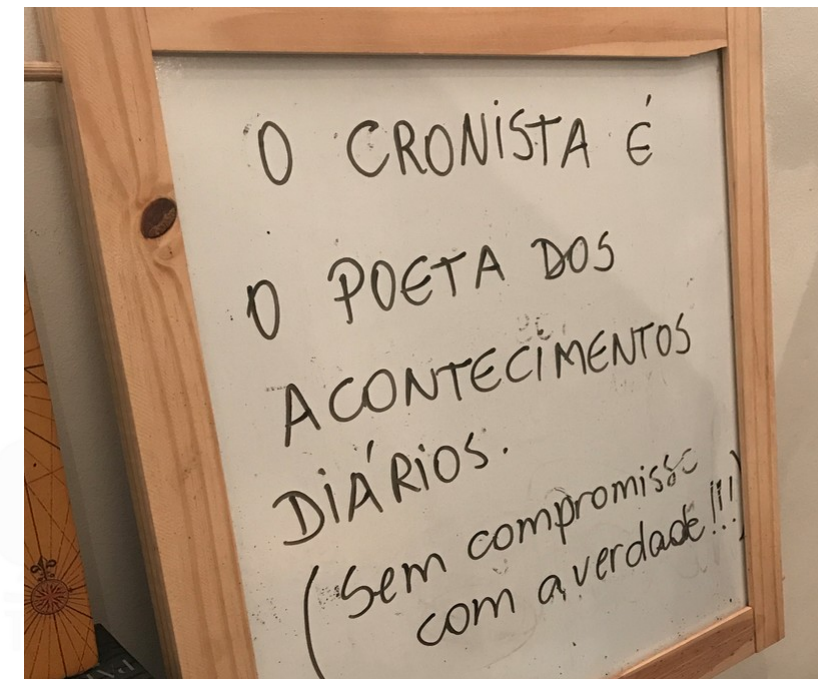 O CRONISTA É
O POETA DOS
ACONTECIMENTOS
DIÁRIOS.
(Sem compromisso
com a verdade!!!)